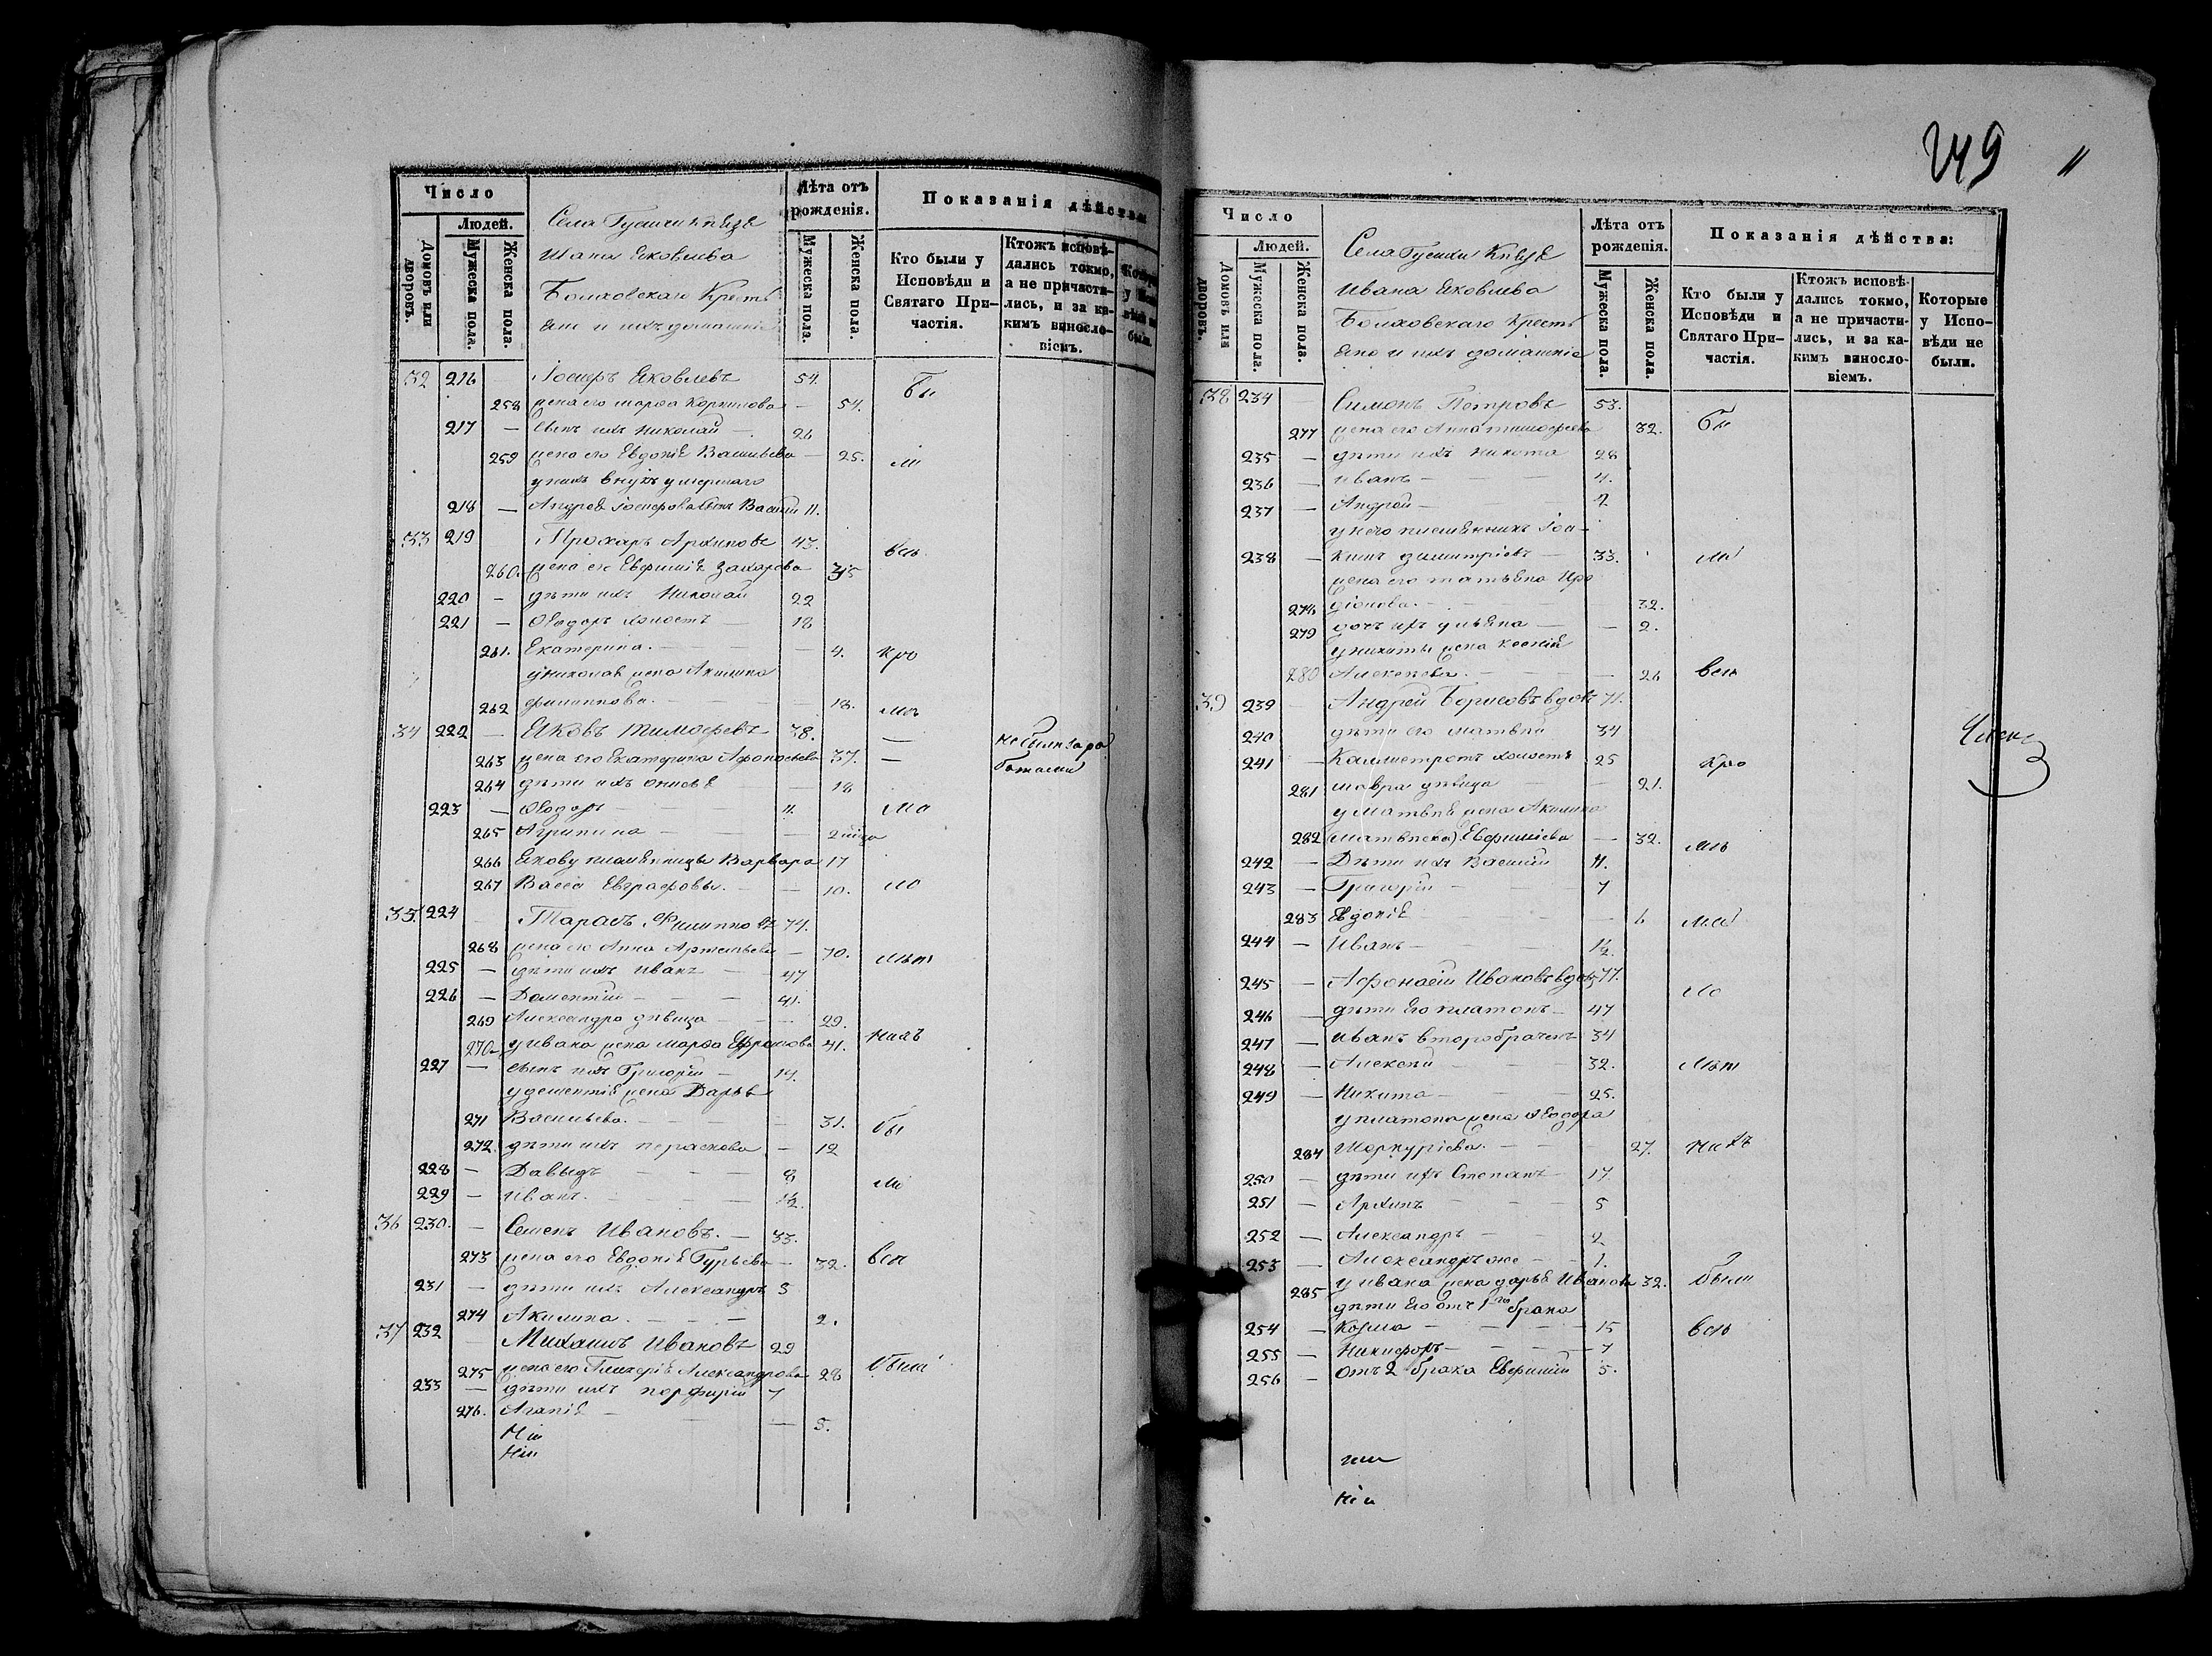 Число
Людей.
Домовъ или дворовъ.
Мужеска пола.
Женска пола.
Села
Ивана Яковлева
Болховскаго Кресть
яне и ихъ домашніе
Лѣта отъ рожденія.
Мужеска пола.
Женска пола.
Показанія дѣйства
Кто были у Исповѣди и Святаго При-частія.
Ктожъ исповѣ-дались токмо, а не причасти-лись, и за ка-кимъ винословіемъ.
32 216 Іосифъ Яковлевъ 54. Бы
258 жена его Марфа Корнилова — 54.
217 — сынъ ихъ Николай — 26
259 жена его Евдокія Васильева — 25. ли
у нихъ внукъ умершаго
218 — Андрея Іосифова сынъ Василій 11.
33 219 Прохоръ Архиповъ 43. всѣ
260. жена его Евфимія Захарова 35
220 — дѣти ихъ Николай 22
221 — Ѳеодоръ холостъ — 18
261. Екатерина. — — 4. кро
у Николая жена Акилина
262 Филиппова. — — 18. мѣ
34 222 — Яковъ Тимофеевъ 38. —
263 жена его Екатерина Афонасьева 37. — не были за ра
ботами
264 дѣти ихъ Анисья — 18
223 — Ѳеодоръ — 11. ма
265 Агрипина — — — 2
266 Якову племянницы Варвара 17
267 Васса Евграфовы. — — 10. ло
35. 224 Тарасъ Филипповъ 74.
268 жена его Анна Артемьева — 70. лѣт
225 — дѣти ихъ Иванъ — 47
226 — Доментій — — — 41.
269 Александра дѣвица — — 29.
270 у Ивана жена Марфа Ефремова 41. нихъ
227 — сынъ ихъ Григорій — 14.
у дементія жена Дарья
271 Васильева. — — — 31. бы
272. дѣти ихъ Параскева — 12
228 — Давыдъ — — — 8
229 — Иванъ. — — — 1/2. ли
36 230. — Семенъ Ивановъ. — 33.
273 жена его Евдокія Гурьева — 32. всѣ
231 — дѣти ихъ Александръ 5
274 Акилина. — — — 2.
37 232 Михаилъ Ивановъ 29
275 жена его Гликерія Александрова 28 были
233 — дѣти ихъ Порфирій 7
276. Агапія — — — 5.
249
Число
Людей.
Домовъ или дворовъ.
Мужеска пола.
Женска пола.
Села
Ивана Яковлева
Болховскаго Кресть
яне и ихъ домашніе
Лѣта отъ рожденія.
Мужеска пола.
Женска пола.
Показанія дѣйства:
Кто были у Исповѣди и Святаго При-частія.
Ктожъ исповѣ-дались токмо, а не причасти-лись, и за ка-кимъ винословіемъ.
Которые у Испо-вѣди не были.
38 234 — Симонъ Петровъ 53.
277 жена его Анна Тимофеева 32. Бы
235 — дѣти ихъ Никита 28
236 — Иванъ — — — 11.
237 — Андрей — — — 2
у него племянникъ Іоа-
238 — кимъ Димитріевъ — 33. ли
жена его Татьяна
278 діонова. — — — 32.
279 дочь ихъ Ульяна — — 2.
у Никиты жена Ксенія
280 Алексѣева. — — — 26 всѣ
39 239 — Андрей Борисовъ вдовъ 71.
240 дѣти его Матвѣй 34
241 — Каллистротъ холостъ 25 кро
281 Мавра дѣвица — — 21.
у Матвѣя жена Акилина
282 (Матвѣева) Евфиміева — 32. мѣ
242 — Дѣти ихъ Василій 11.
243 — Григорій — — 7
283 Евдокія — — 6 ма
244 — Иванъ — — 1/2.
245 — Афонасій Ивановъ вдовъ 77. ло
246 — дѣти его Платонъ — 47
247 — Иванъ второбраченъ 34
248 — Алексѣй — — 32. лѣт
249 — Никита — — 25.
у Платона жена Ѳеодора
284 Меркуріева. — — — 27. нихъ
250 — дѣти ихъ Степанъ — 17
251 — Архипъ — — 5
252 — Александръ — — 2
253 — Александръ же — — 1.
285 у Ивана жена Дарья Иванова 32. были
дѣти его отъ 1го брака
254 — Козма — — — 15 всѣ
255 — Никифоръ — — — 7
256 — отъ 2 брака Евфимій 5.